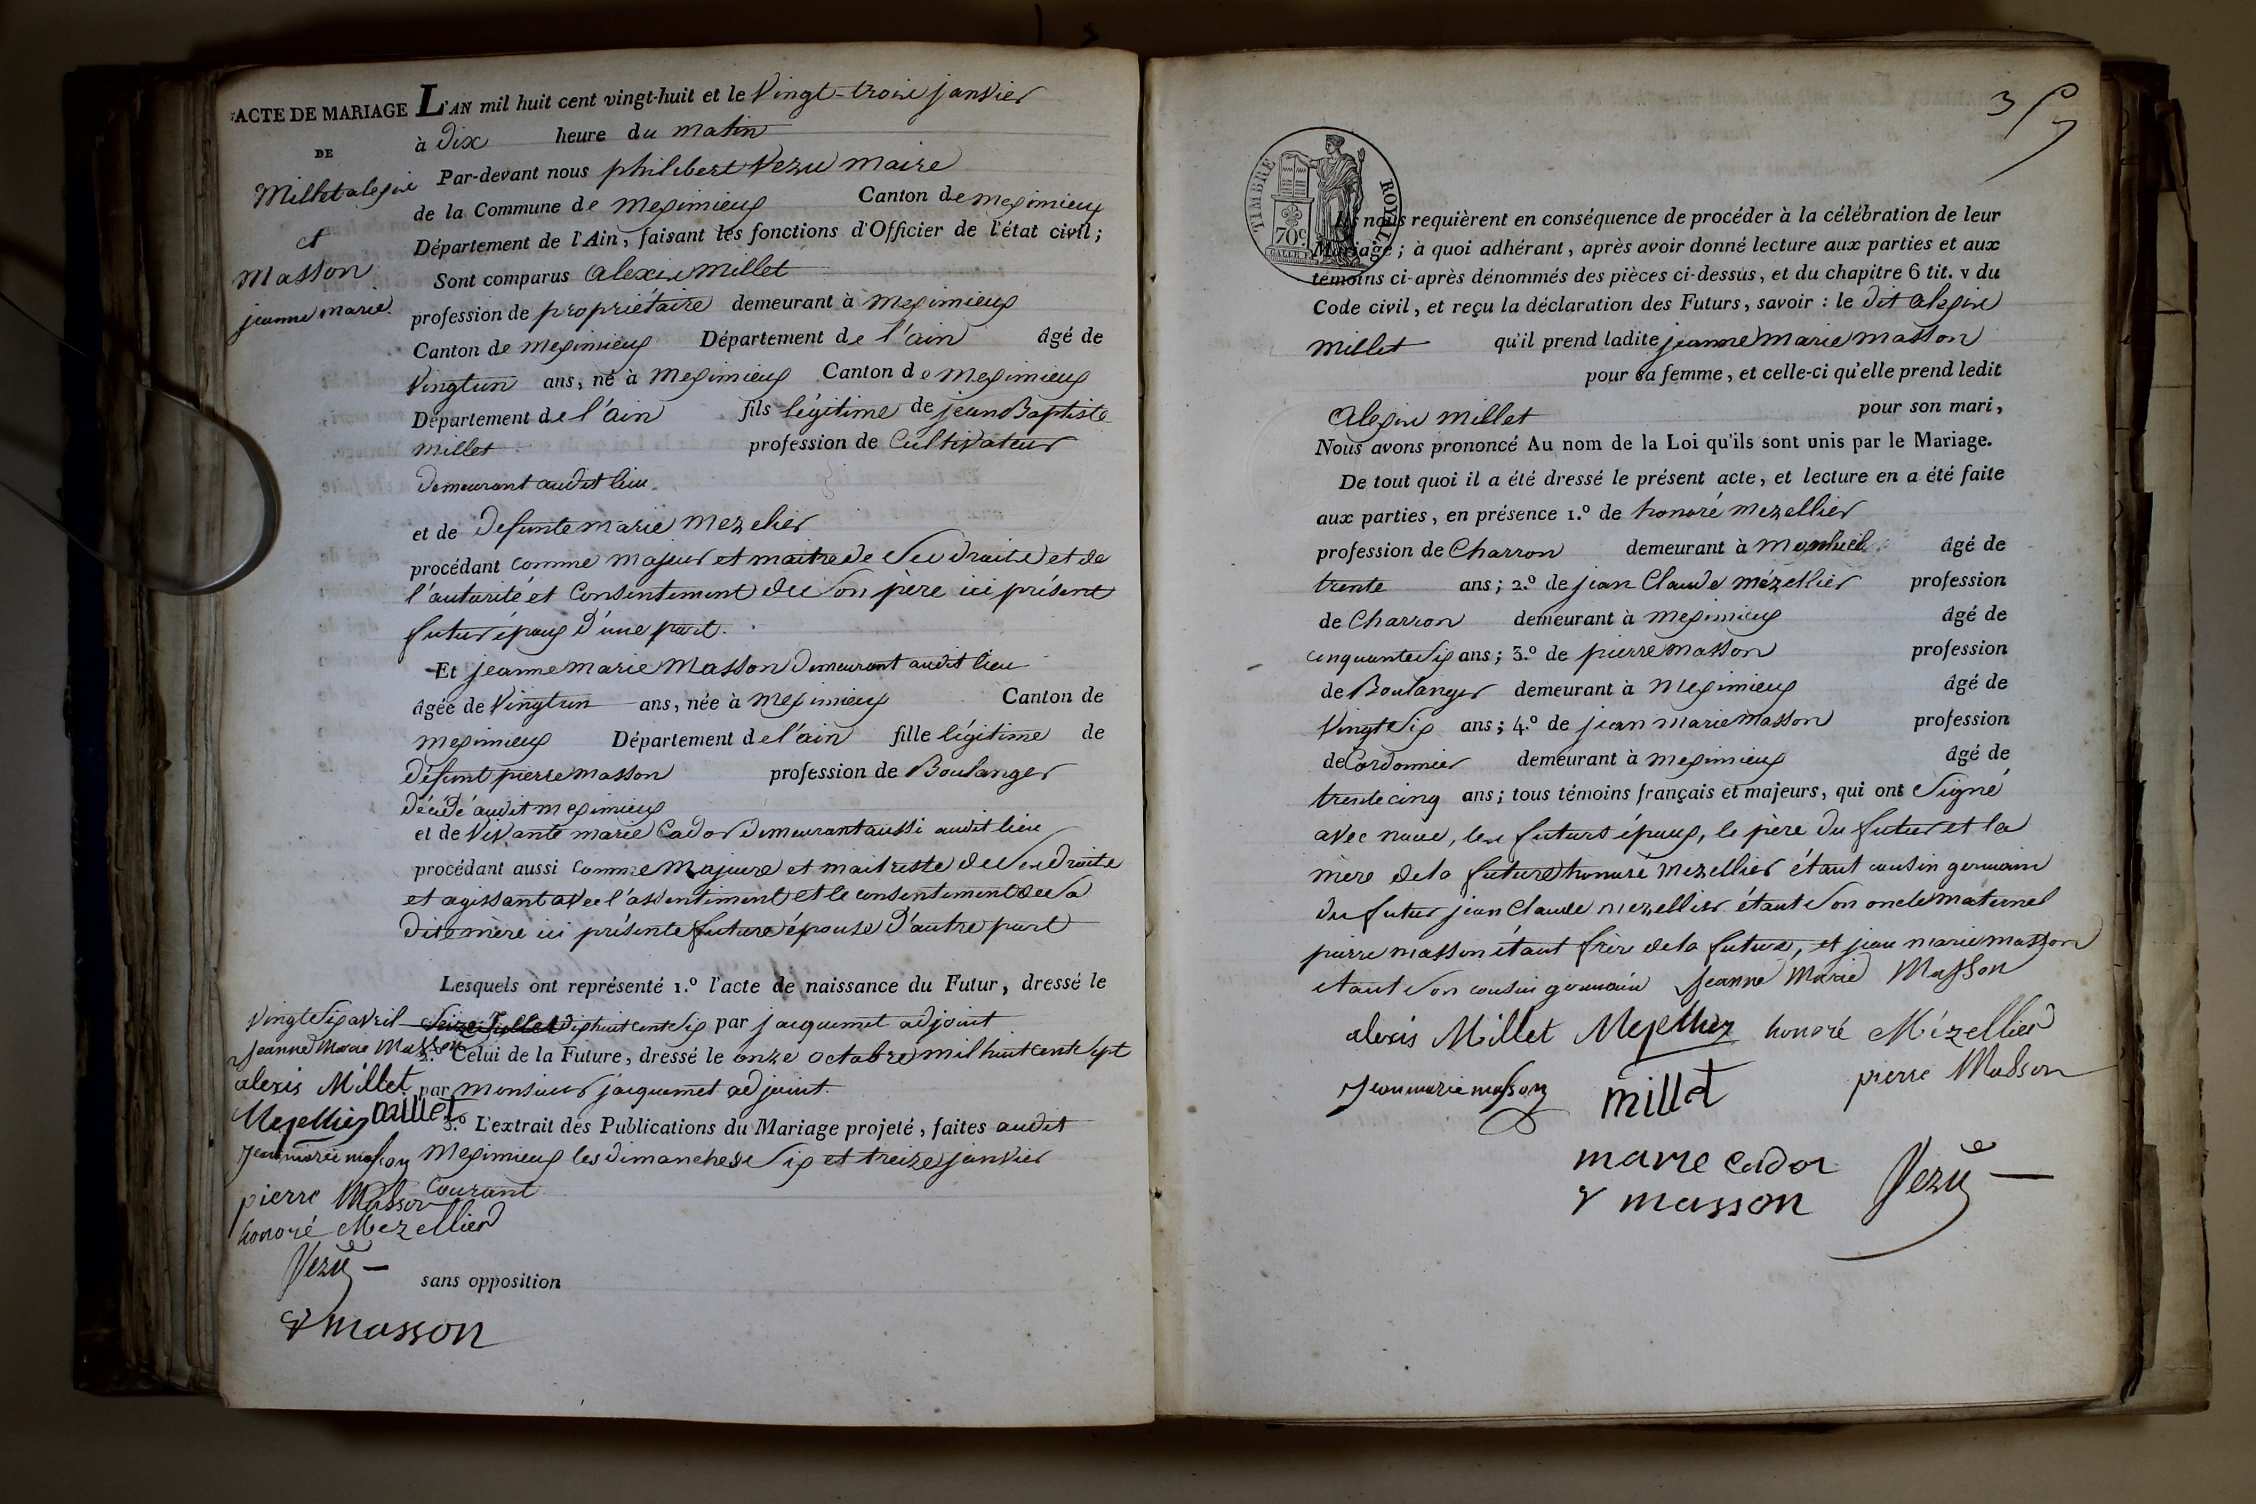 ACTE DE MARIAGE
DE
Millet alexis
et
Masson
jeanne marie.
L'AN mil huit cent vingt-huit et le Vingt-trois janvier
à dix heure du matin
Par-devant nous philibert Vezu maire
de la Commune de meximieux Canton de meximieux
Département de l'Ain, faisant les fonctions d'Officier de l'état civil;
Sont comparus alexis millet
profession de propriétaire demeurant à meximieux
Canton de meximieux Département de l'ain âgé de
Vingtun ans, né à meximieux Canton de meximieux
Département de l'ain fils légitime de jean Baptiste
millet profession de Cultivateur
demeurant audit lieu
et de defunte marie mezelier
procédant comme majeur et maitre de ses droits et de
l'autorité et Consentement de son père ici présent
futur époux d'une part.
Et jeanne marie Masson demeurant audit lieu
âgée de Vingtun ans, née à meximieux Canton de
meximieux Département de l'ain fille légitime de
défunt pierre masson profession de Boulanger
décédé audit meximieux
et de vivante marie Cador demeurant aussi audit lieu
procédant aussi comme majeure et maitresse de ses droits
et agissant avec l'assentiment et le consentement de sa
dite mère ici présente future épouse d'autre part
Lesquels ont représenté 1.º l'acte de naissance du Futur, dressé le
vingt six avril dix huit cent six par jacquemet adjoint
2.º Celui de la Future, dressé le onze octobre mil huit cent sept
par monsieur jacquemet adjoint.
3.º L'extrait des Publications du Mariage projeté, faites audit
meximieux les dimanches six et treize janvier
courant
sans opposition
Jeanne Marie Masson
alexis Millet
Mezellier millet
Jean marie masson
pierre Masson
honoré Mezellier
Vezu
Masson
3
TIMBRE ROYAL
70c
Ils nous requièrent en conséquence de procéder à la célébration de leur
Mariage; à quoi adhérant, après avoir donné lecture aux parties et aux
témoins ci-après dénommés des pièces ci-dessus, et du chapitre 6 tit. v du
Code civil, et reçu la déclaration des Futurs, savoir: le dit alexis
millet qu'il prend ladite jeanne marie masson
pour sa femme, et celle-ci qu'elle prend ledit
alexis millet pour son mari,
Nous avons prononcé Au nom de la Loi qu'ils sont unis par le Mariage.
De tout quoi il a été dressé le présent acte, et lecture en a été faite
aux parties, en présence 1.º de honoré mezellier
profession de Charron demeurant à âgé de
trente ans; 2.º de jean Claude mézellier profession
de Charron demeurant à meximieux âgé de
cinquante six ans; 3.º de pierre masson profession
de Boulanger demeurant à meximieux âgé de
vingt six ans; 4.º de jean marie masson profession
de Cordonnier demeurant à meximieux âgé de
trente cinq ans; tous témoins français et majeurs, qui ont signé
avec nous, les futurs époux, le père du futur et la
mère de la future honoré mezellier étant cousin germain
du futur jean Claude mezellier étant son oncle maternel
pierre masson étant frère de la future, et jean marie masson
étant son cousin germain Jeanne Marie Masson
alexis Millet Mezellier honoré Mézellier
Jean marie masson millet pierre Masson
marie cador
masson Vezu